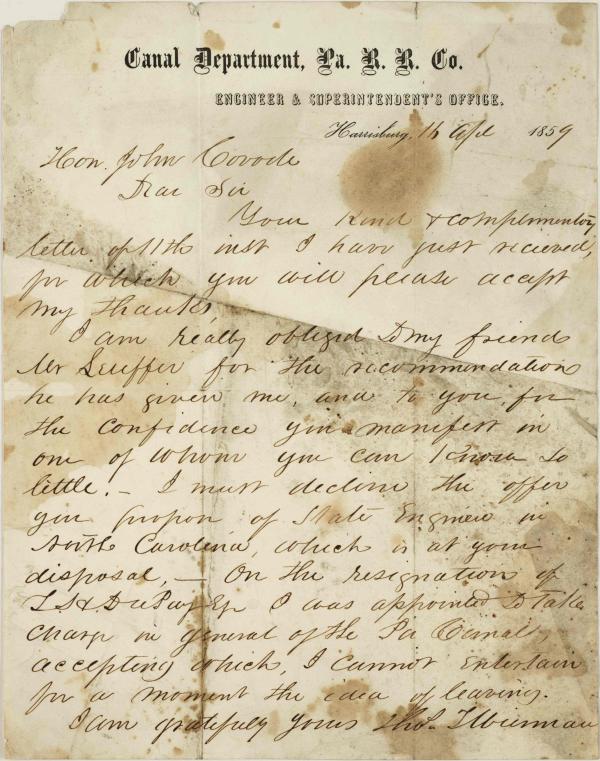 Canal Department, Pa. R. R. Co.
ENGINEER & SUPERINTENDENT'S OFFICE.
Harrisburg, 16 Apl 1859
Hon. John Covode
Dear Sir
Your kind & complimentory
letter of 11th inst I have just recieved,
for which you will please accept
my thanks,
I am really obliged to my friend
Mr Seuffer for the recommendations
he has given me, and to you, for
the confidence you manifest in
one of whom you can know so
little. – I must decline the offer
you propose of State Engineer in
North Carolina, which is at your
disposal, – On the resignation of
I was appointed to take
charge in general of the Pa Canals,
accepting which, I cannot entertain
for a moment the idea of leaving.
I am gratefuly yours Thos. T Wierman